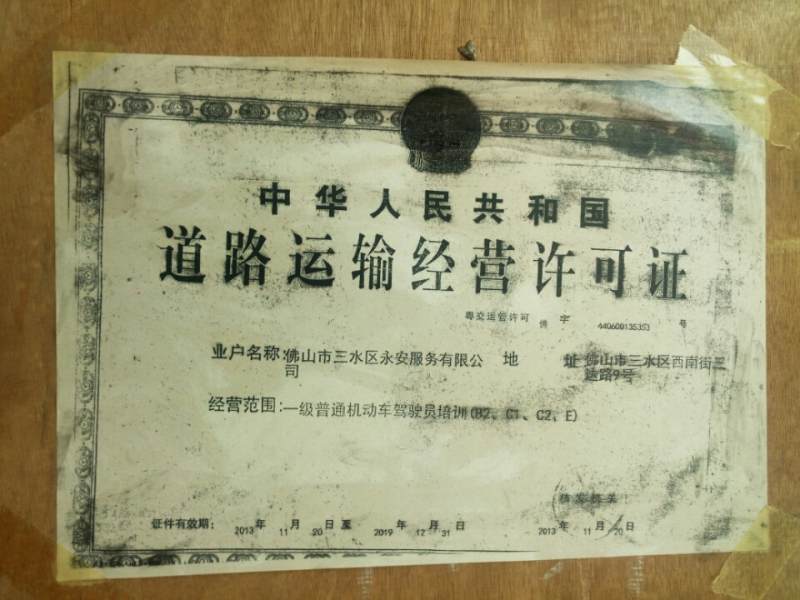 中华人民共和国
道路运输经营许可证
粤交运管许可 佛 字 440600135353 号
业户名称:佛山市三水区永安服务有限公司
地 址 佛山市三水区西南街三达路9号
经营范围:一级普通机动车驾驶员培训(B2、C1、C2、E)
核发机关
证件有效期: 2013年 11月 20日 至 2019年 12月 31日
2013年 11月 20日